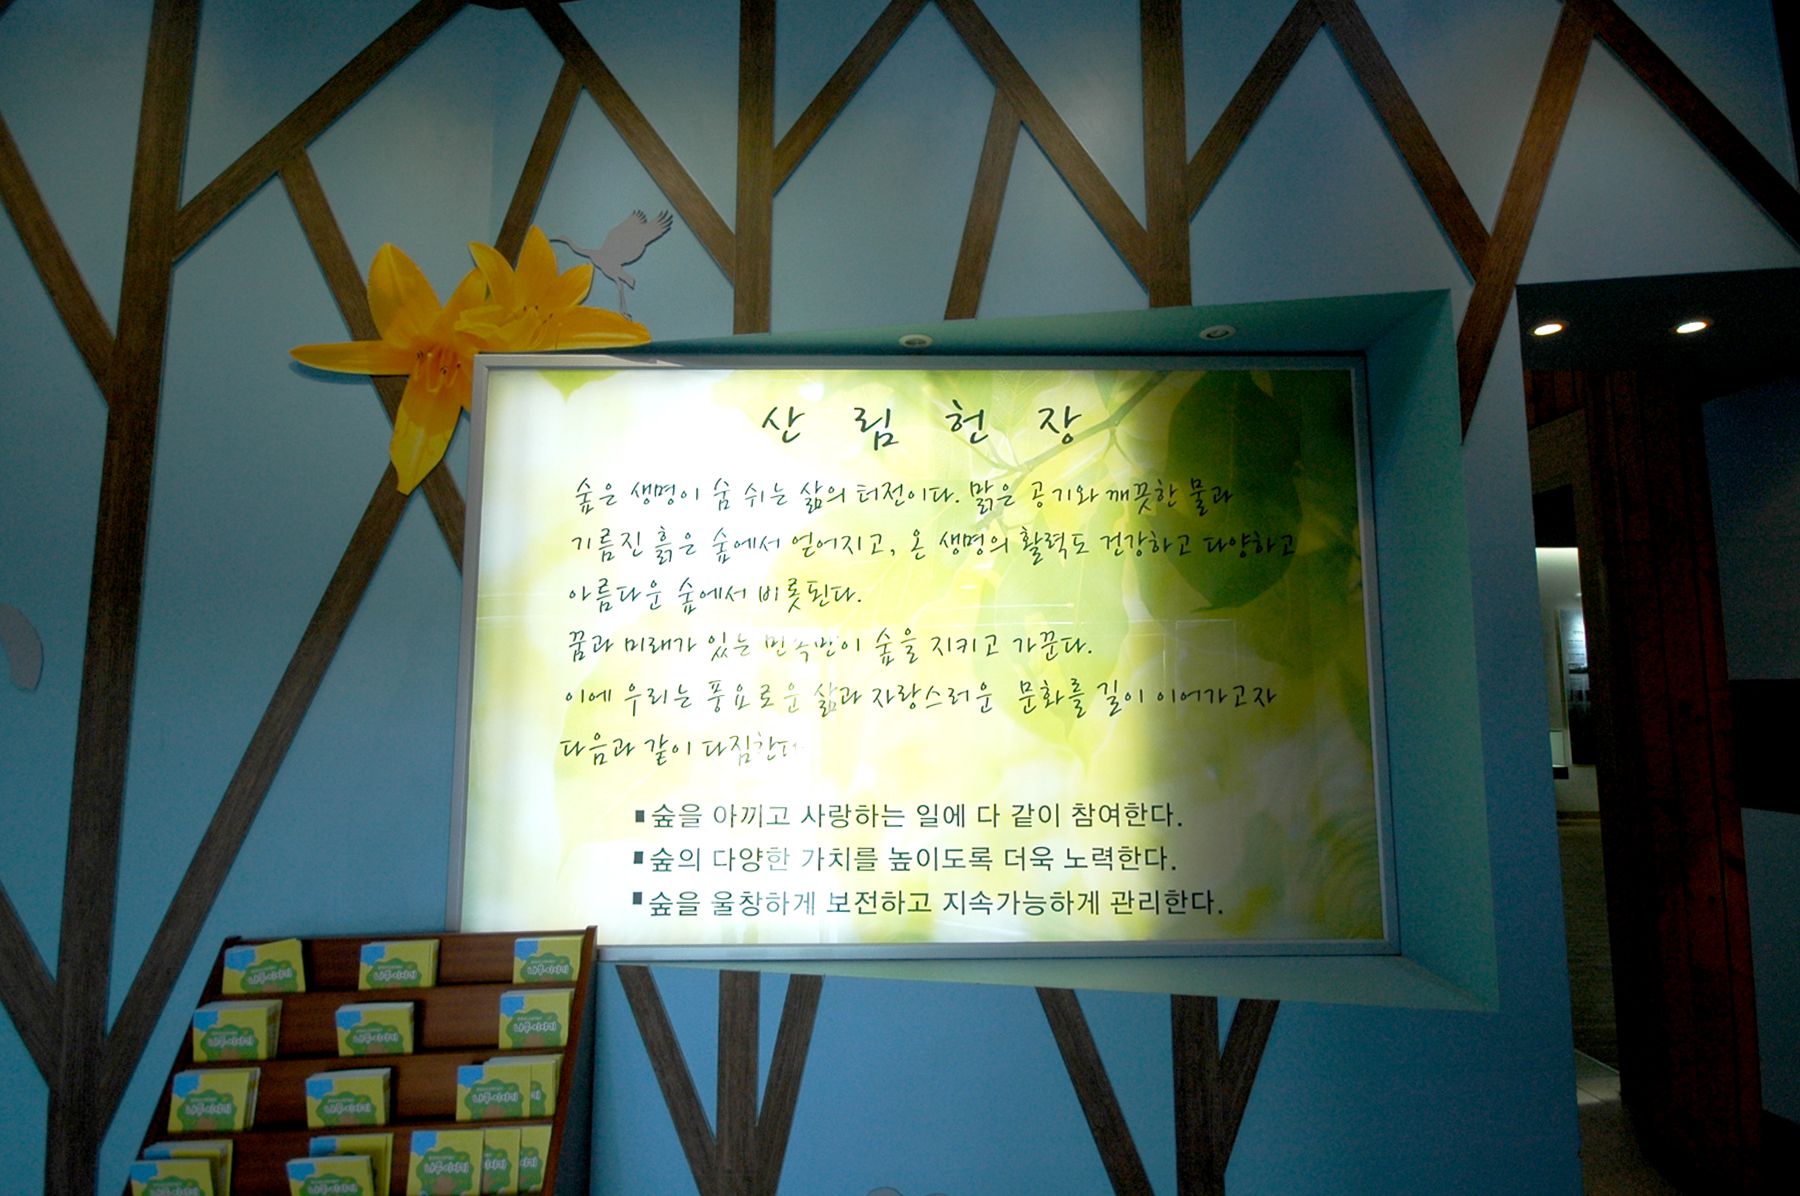 산 림 헌 장
숲은 생명이 숨 쉬는 삶의 터전이다. 맑은 공기와 깨끗한 물과
기름진 흙은 숲에서 얻어지고, 온 생명의 활력도 건강하고 다양하고
아름다운 숲에서 비롯된다.
꿈과 미래가 있는 민족만이 숲을 지키고 가꾼다.
이에 우리는 풍요로운 삶과 자랑스러운 문화를 길이 이어가고자
다음과 같이 다짐한다
■숲을 아끼고 사랑하는 일에 다 같이 참여한다.
■숲의 다양한 가치를 높이도록 더욱 노력한다.
■숲을 울창하게 보전하고 지속가능하게 관리한다.
나무이야기
나무이야기
나무이야기
나무이야기
나무이야기
나무이야기
나무이야기
나무이야기
나무이야기
나무이야기